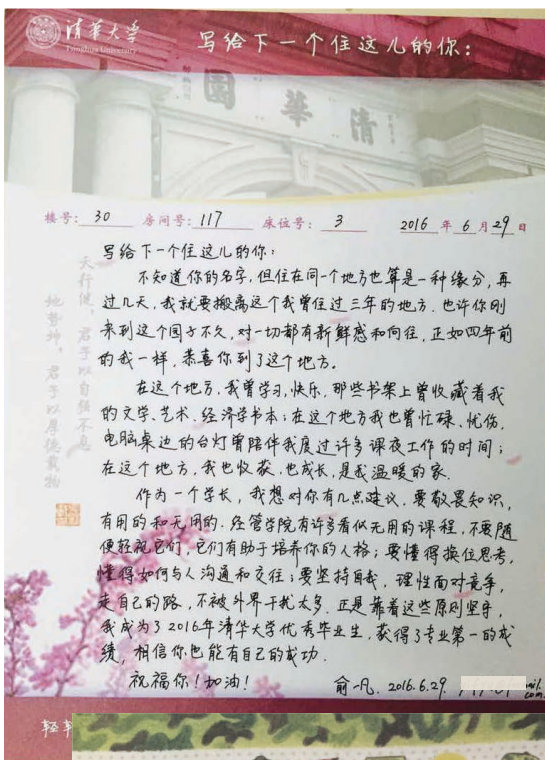 清華大学
Tsinghua University
写给下一个住这儿的你:
清華園
楼号: 30 房间号: 117 床位号: 3 2016 年 6 月 29 日
写给下一个住这儿的你:
不知道你的名字,但住在同一个地方也算是一种缘分,再
过几天,我就要搬离这个我曾住过三年的地方.也许你刚
来到这个园子不久,对一切都有新鲜感和向往,正如四年前
的我一样,恭喜你到了这个地方。
在这个地方,我曾学习,快乐,那些书架上曾收藏着我
的文学、艺术、经济学书本;在这个地方我也曾忙碌、忧伤,
电脑桌边的台灯曾陪伴我度过许多深夜工作的时间;
在这个地方,我也收获,也成长,是我温暖的家.
作为一个学长,我想对你有几点建议.要敬畏知识,
有用的和无用的.经管学院有许多看似无用的课程,不要随
便轻视它们,它们有助于培养你的人格;要懂得换位思考,
懂得如何与人沟通和交往;要坚持自我,理性面对竞争,
走自己的路,不被外界干扰太多.正是靠着这些原则坚守,
我成为了2016年清华大学优秀毕业生,获得了专业第一的成
绩,相信你也能有自己的成功.
祝福你!加油! 俞一凡. 2016.6.29.
com
天行健,君子以自强不息
地势坤,君子以厚德载物
轻